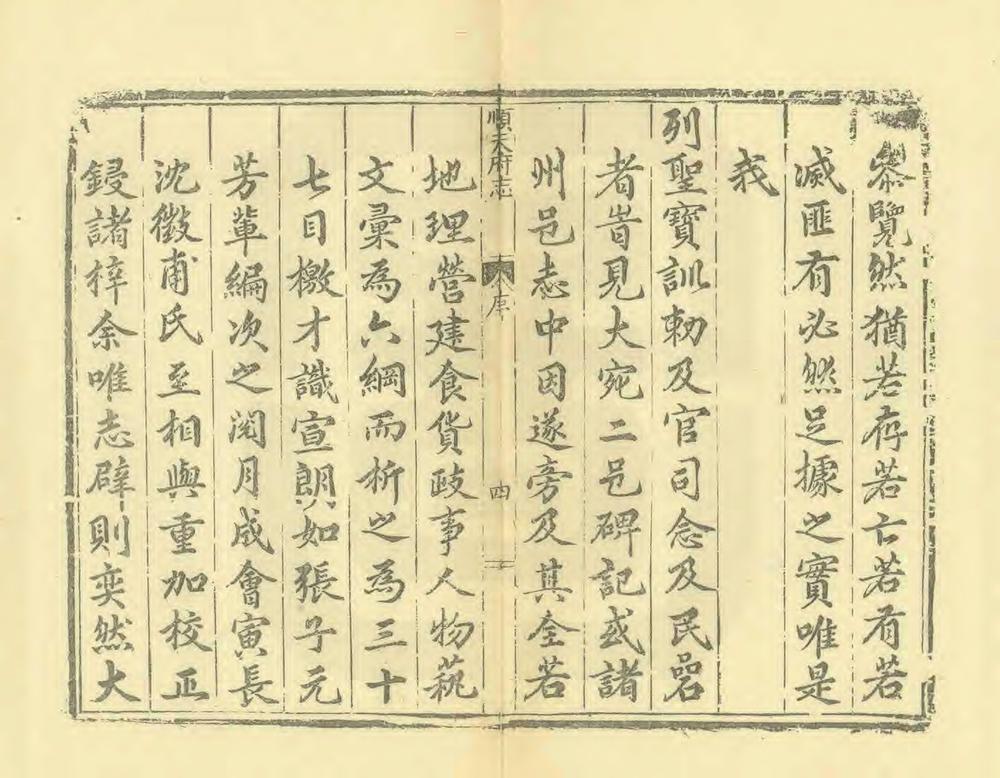 叅覽然猶若存若亡若有若
滅匪有必然足據之實唯是
我
列聖寶訓勅及官司念及民碞
者旹見大宛二邑碑記或諸
州邑志中因遂旁及其全若
順天府志
序
四
地理營建食貨政事人物蓺
文彙為六綱而析之為三十
七目檄才識宣朗如張子元
芳軰編次之閱月成會寅長
沈徵甫氏至相與重加校正
鋟諸梓余唯志辟則奕然大